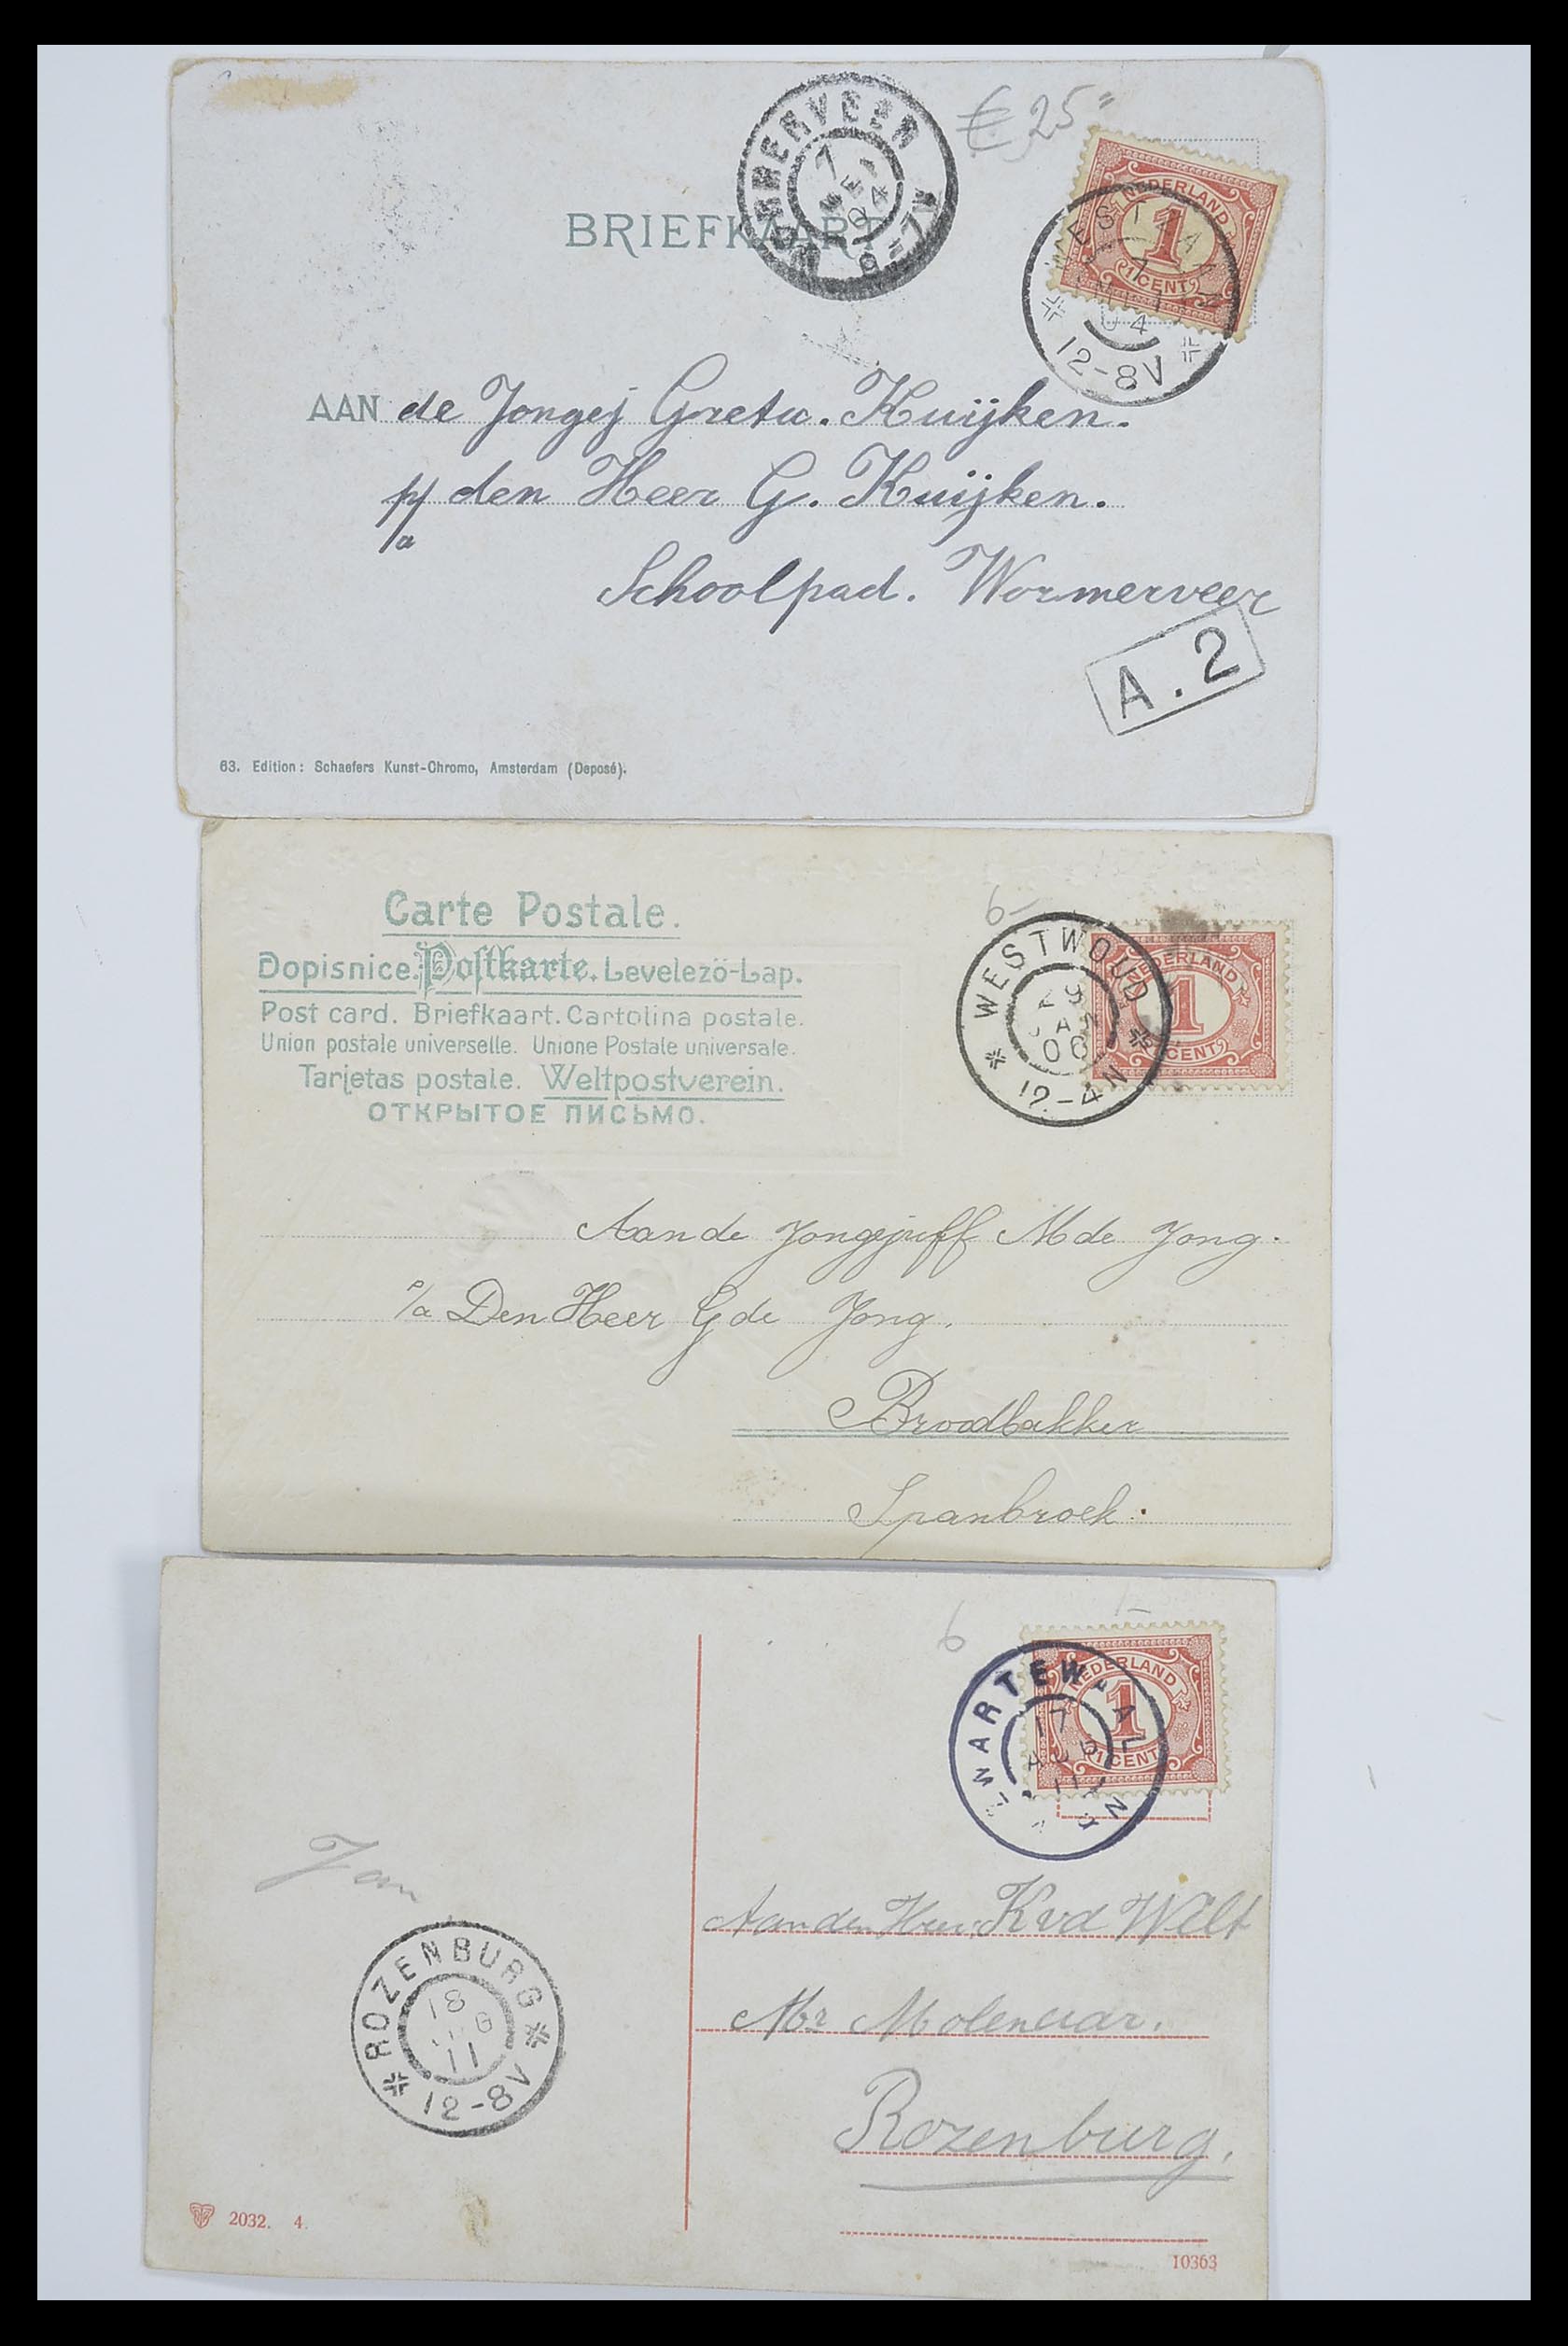 € 25"
WORMERVEER
7
04
8-7V
BRIEFKAART
NEDERLAND
1
1 CENT
WESTZAAN
7
04
12-8V
AAN de Jongej Greta. Kuijken.
p/a den Heer G. Kuijken.
Schoolpad. Wormerveer
A.2
63. Edition: Schaefers Kunst-Chromo, Amsterdam (Deposé).
Carte Postale.
Dopisnice. Postkarte. Levelező-Lap.
Post card. Briefkaart. Cartolina postale.
Union postale universelle. Unione Postale universale.
Tarjetas postale. Weltpostverein.
ОТКРЫТОЕ ПИСЬМО.
6-
WESTWOUD
29
JAN
06
12-4N
NEDERLAND
1
1 CENT
Aan de Jongejuff M de Jong.
p/a Den Heer G de Jong.
Broodbakker
Spanbroek.
6
ZWARTEWAAL
17
AUG
11
N
NEDERLAND
1
1 CENT
Jan
ROZENBURG
18
AUG
11
12-8V
Aan den Heer K vd Welt
Mr Molenaar.
Rozenburg.
2032. 4.
10363